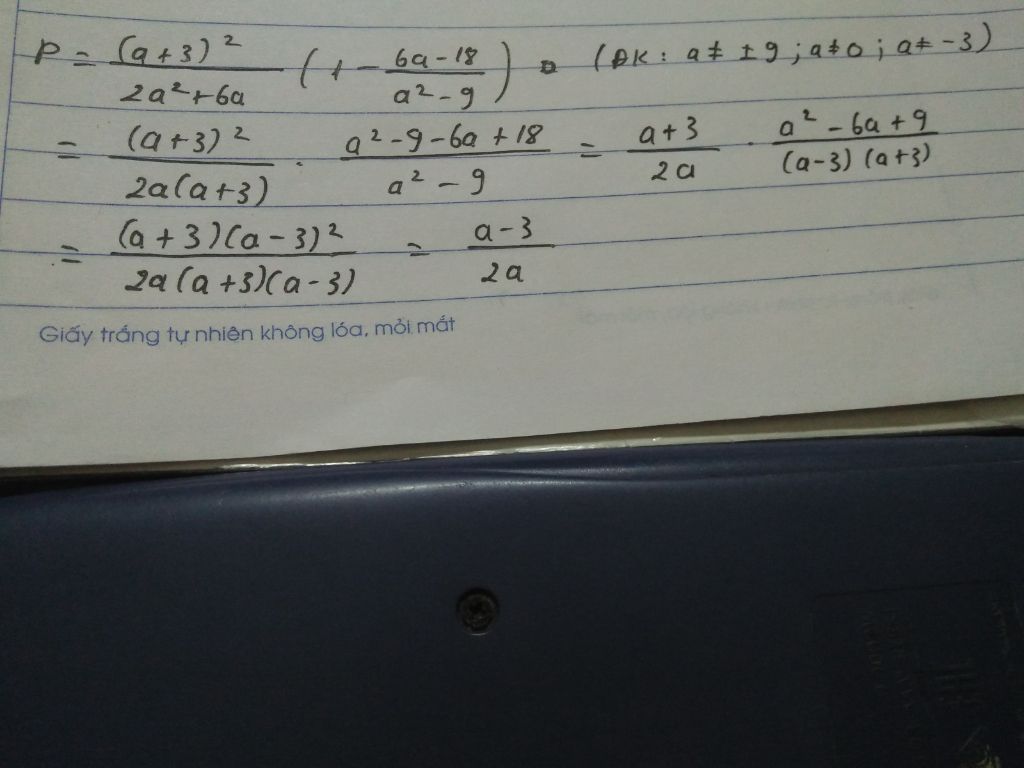 P = (a+3)² / 2a²+6a (1 - 6a-18 / a²-9) (ĐK: a ≠ ±9; a≠0; a≠-3)
= (a+3)² / 2a(a+3) . a²-9-6a+18 / a²-9 = a+3 / 2a . a²-6a+9 / (a-3)(a+3)
= (a+3)(a-3)² / 2a(a+3)(a-3) = a-3 / 2a
Giấy trắng tự nhiên không lóa, mỏi mắt